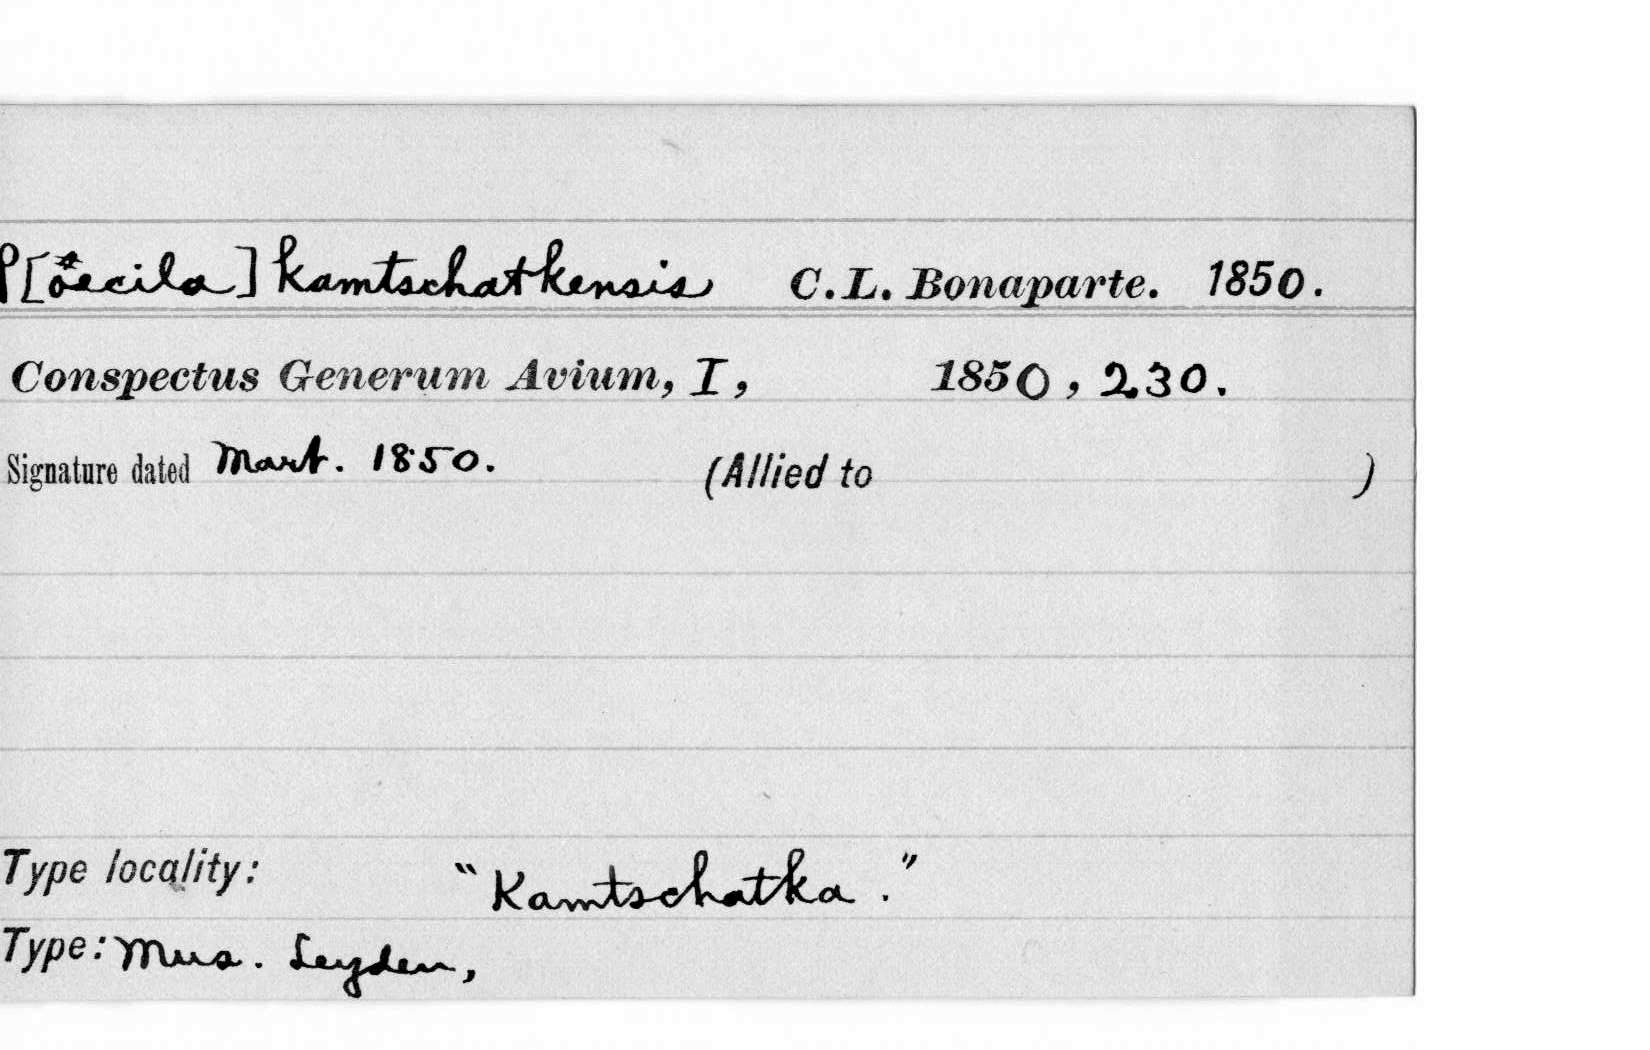 P[œcila] kamtschatkensis C.L. Bonaparte. 1850.
Conspectus Generum Avium, I, 1850, 230.
Signature dated Mart. 1850. (Allied to )
Type locality: "Kamtschatka."
Type: Mus. Leyden,